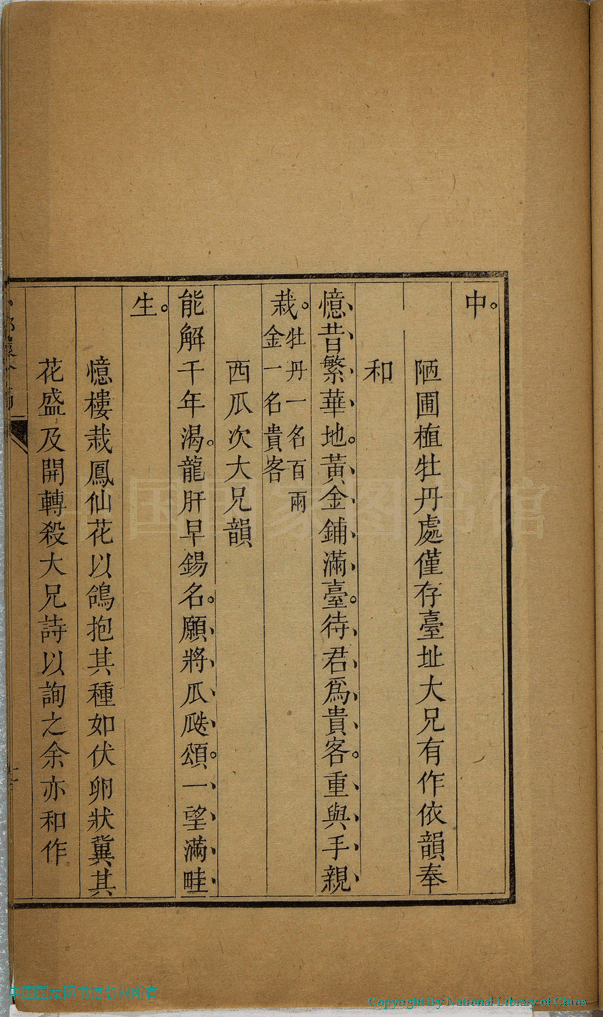 中。
陋圃植牡丹處僅存臺址大兄有作依韻奉
和
憶昔繁華地。黃金鋪滿臺。待君爲貴客。重與手親
栽。牡丹一名百兩
金一名貴客
西瓜次大兄韻
能解千年渴。龍肝早錫名。願將瓜瓞頌。一望滿畦
生。
憶樓栽鳳仙花以鴿抱其種如伏卵狀冀其
花盛及開轉殺大兄詩以詢之余亦和作
Copyright By National Library of China